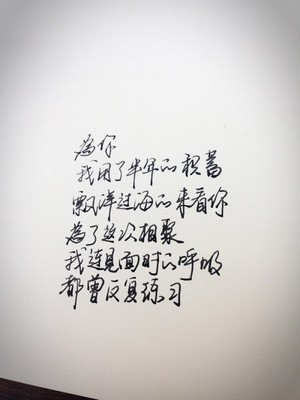 為你
我用了半年的积蓄
飘洋过海的来看你
為了这次相聚
我连见面时的呼吸
都曾反复练习